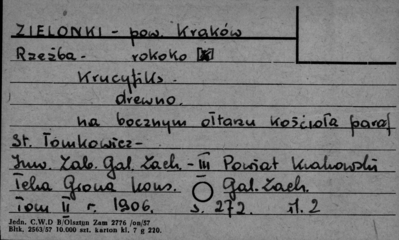 ZIELONKI - pow. Kraków
Rzeźba - rokoko
Krucyfiks.
drewno.
na bocznym ołtarzu kościoła paraf
St. Tomkowicz -
Inw. Zab. Gal. Zach. - III Powiat Krakowski
Teka Grona Kons. Gal. Zach.
Tom II r. 1906. s. 272. il. 2
Jedn. C.W.D B/Olsztyn Zam 2776 /on/57
Błsk. 2563/57 10.000 szt. karton kl. 7 g 220.